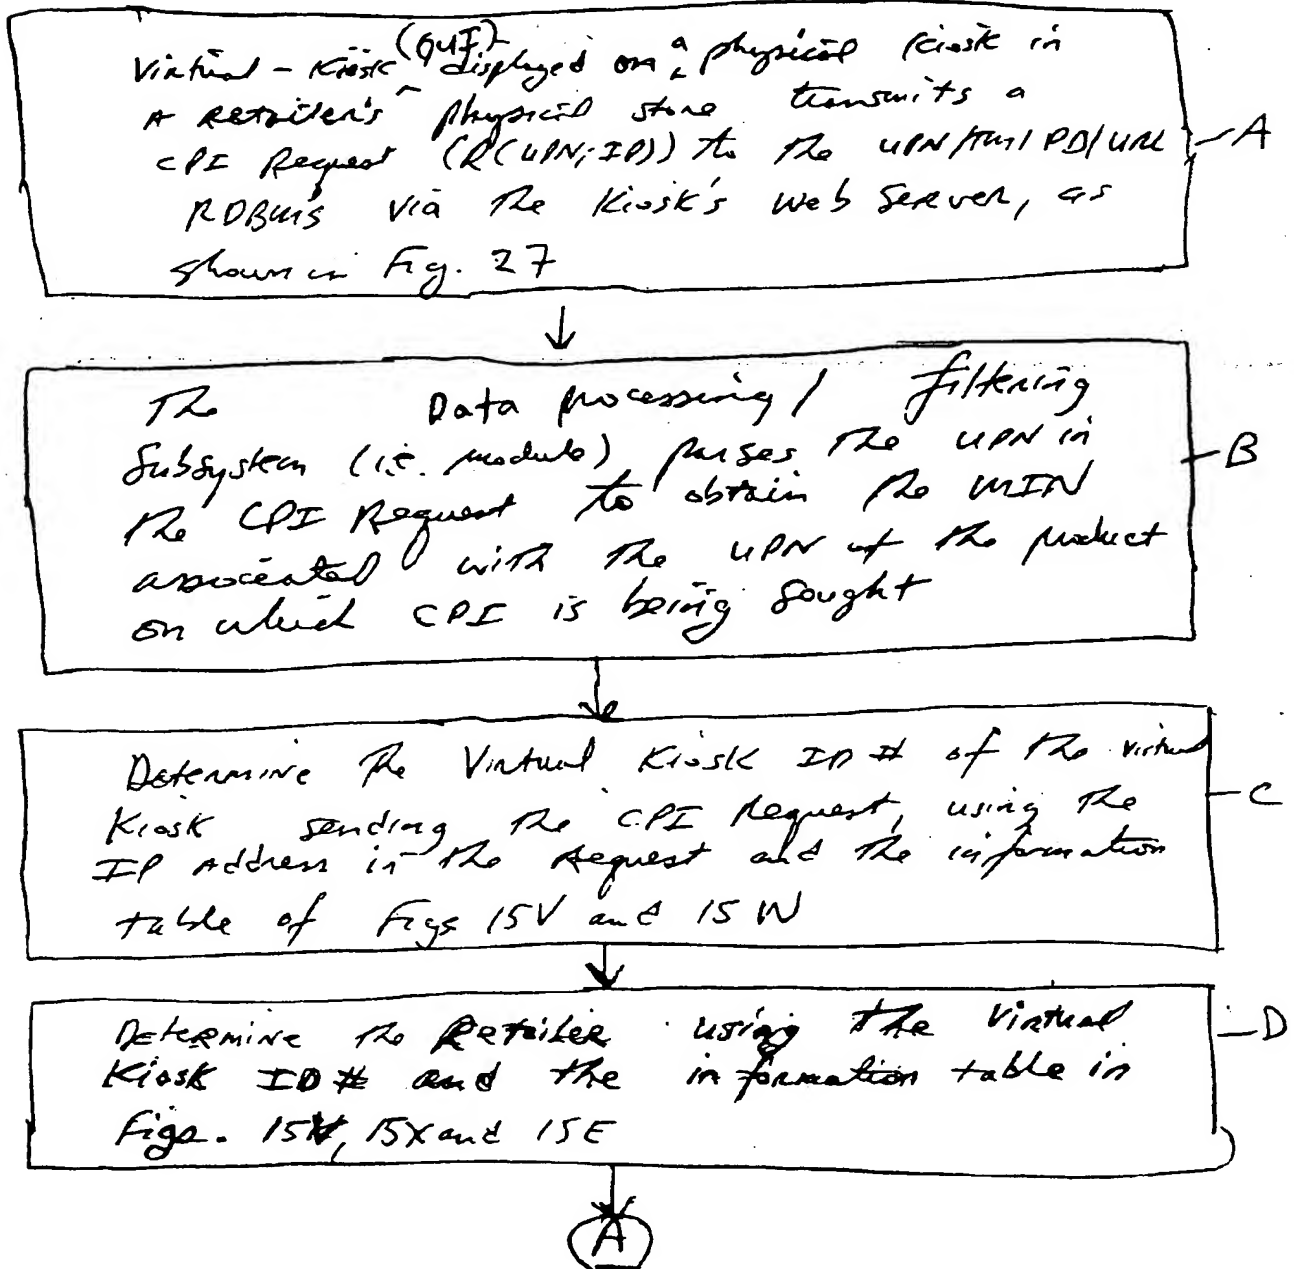 Virtual-Kiosk (GUI) displayed on a physical Kiosk in
A Retailer's physical store transmits a
CPI Request (R(UPN; IP)) to the UPN/TM/PD/URL
RDBMS via the Kiosk's Web Server, as
shown in Fig. 27
A
The Data processing / filtering
Subsystem (i.e. module) parses the UPN in
the CPI Request to obtain the MIN
associated with the UPN of the product
on which CPI is being sought
B
Determine the Virtual Kiosk ID # of the virtual
Kiosk sending the CPI Request, using the
IP Address in the Request and the information
table of Figs 15V and 15W
C
Determine the Retailer using the Virtual
Kiosk ID # and the information table in
Figs. 15X and 15E
D
A